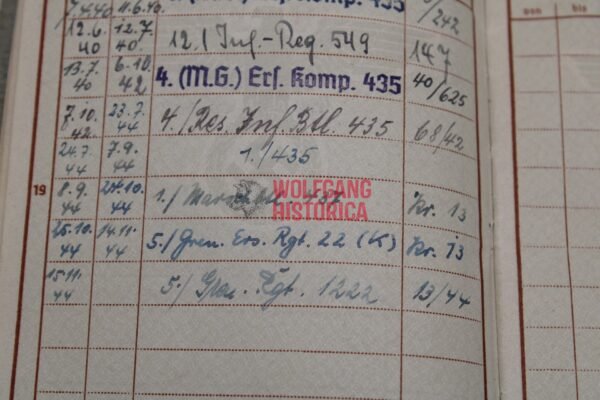 von bis
7.4.40 11.6.40. Komp. 435 /242
12.6. 12.7. 12./Inf.-Reg. 549 147
40 40.
13.7. 6.10. 4. (M.G.) Ers. Komp. 435 40/625
40 42
7.10. 23.7. 4./Res. Inf. Btl. 435 68/42
42. 44
24.7. 7.9. 1./435
44 44.
19 8.9. 24.10. 1./ 437 Kr. 13
44 44
WOLFGANG
HISTORICA
25.10. 14.11. 5./Gren. Ers. Rgt. 22 (K) Kr. 13
44 44
15.11. 5./Gren. Rgt. 1222 13/44
44